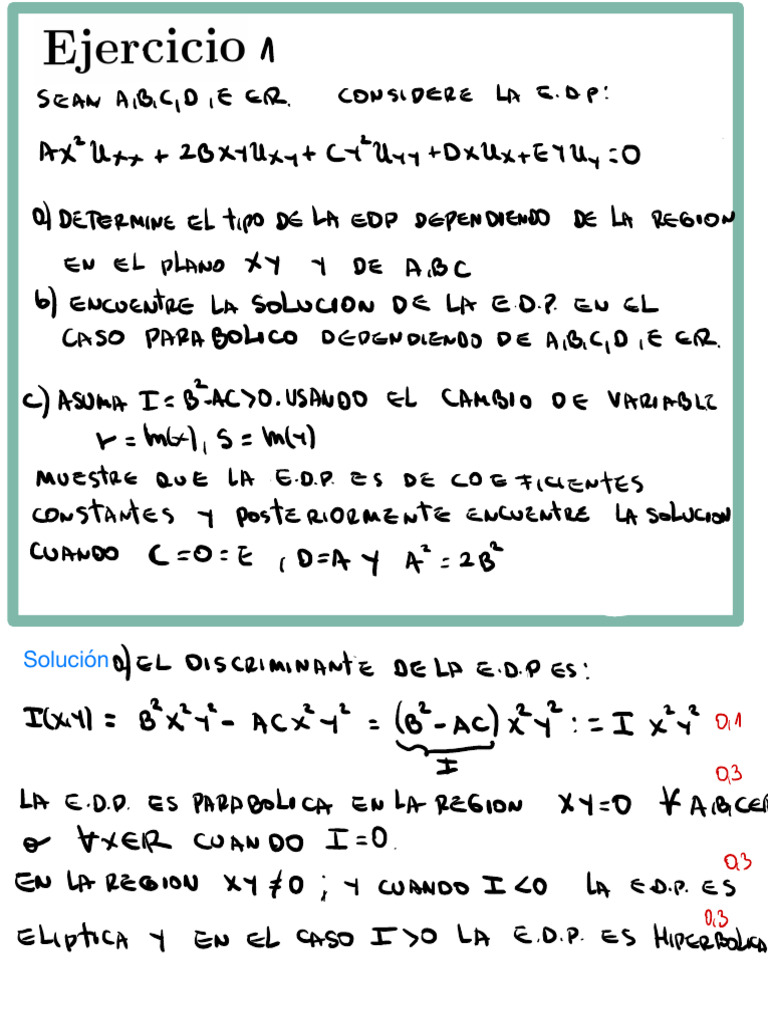 Ejercicio 1
SEAN A,B,C,D,E ∈ ℝ. CONSIDERE LA E.D.P:
Ax²Uxx + 2BXYUxy + CY²Uyy + DXUx + EYUy = 0
a) DETERMINE EL TIPO DE LA EDP DEPENDIENDO DE LA REGION
EN EL PLANO XY Y DE A,B,C
b) ENCUENTRE LA SOLUCION DE LA E.D.P. EN EL
CASO PARABOLICO DEPENDIENDO DE A,B,C,D,E ∈ ℝ.
c) ASUMA I = B²-AC>0. USANDO EL CAMBIO DE VARIABLE
r = ln(x), S = ln(y)
MUESTRE QUE LA E.D.P. ES DE COEFICIENTES
CONSTANTES Y POSTERIORMENTE ENCUENTRE LA SOLUCION
CUANDO C=0=E, D=A Y A² = 2B²
Solución a) EL DISCRIMINANTE DE LA E.D.P ES:
I(X,Y) = B²X²Y² - ACX²Y² = (B²-AC) X²Y² := I X²Y² 0,1
I
0,3
LA E.D.P. ES PARABOLICA EN LA REGION XY=0 ∀ A,B,C∈ℝ
o ∀X∈ℝ CUANDO I=0.
0,3
EN LA REGION XY≠0; Y CUANDO I<0 LA E.D.P. ES
0,3
ELIPTICA Y EN EL CASO I>0 LA E.D.P. ES HIPERBOLICA